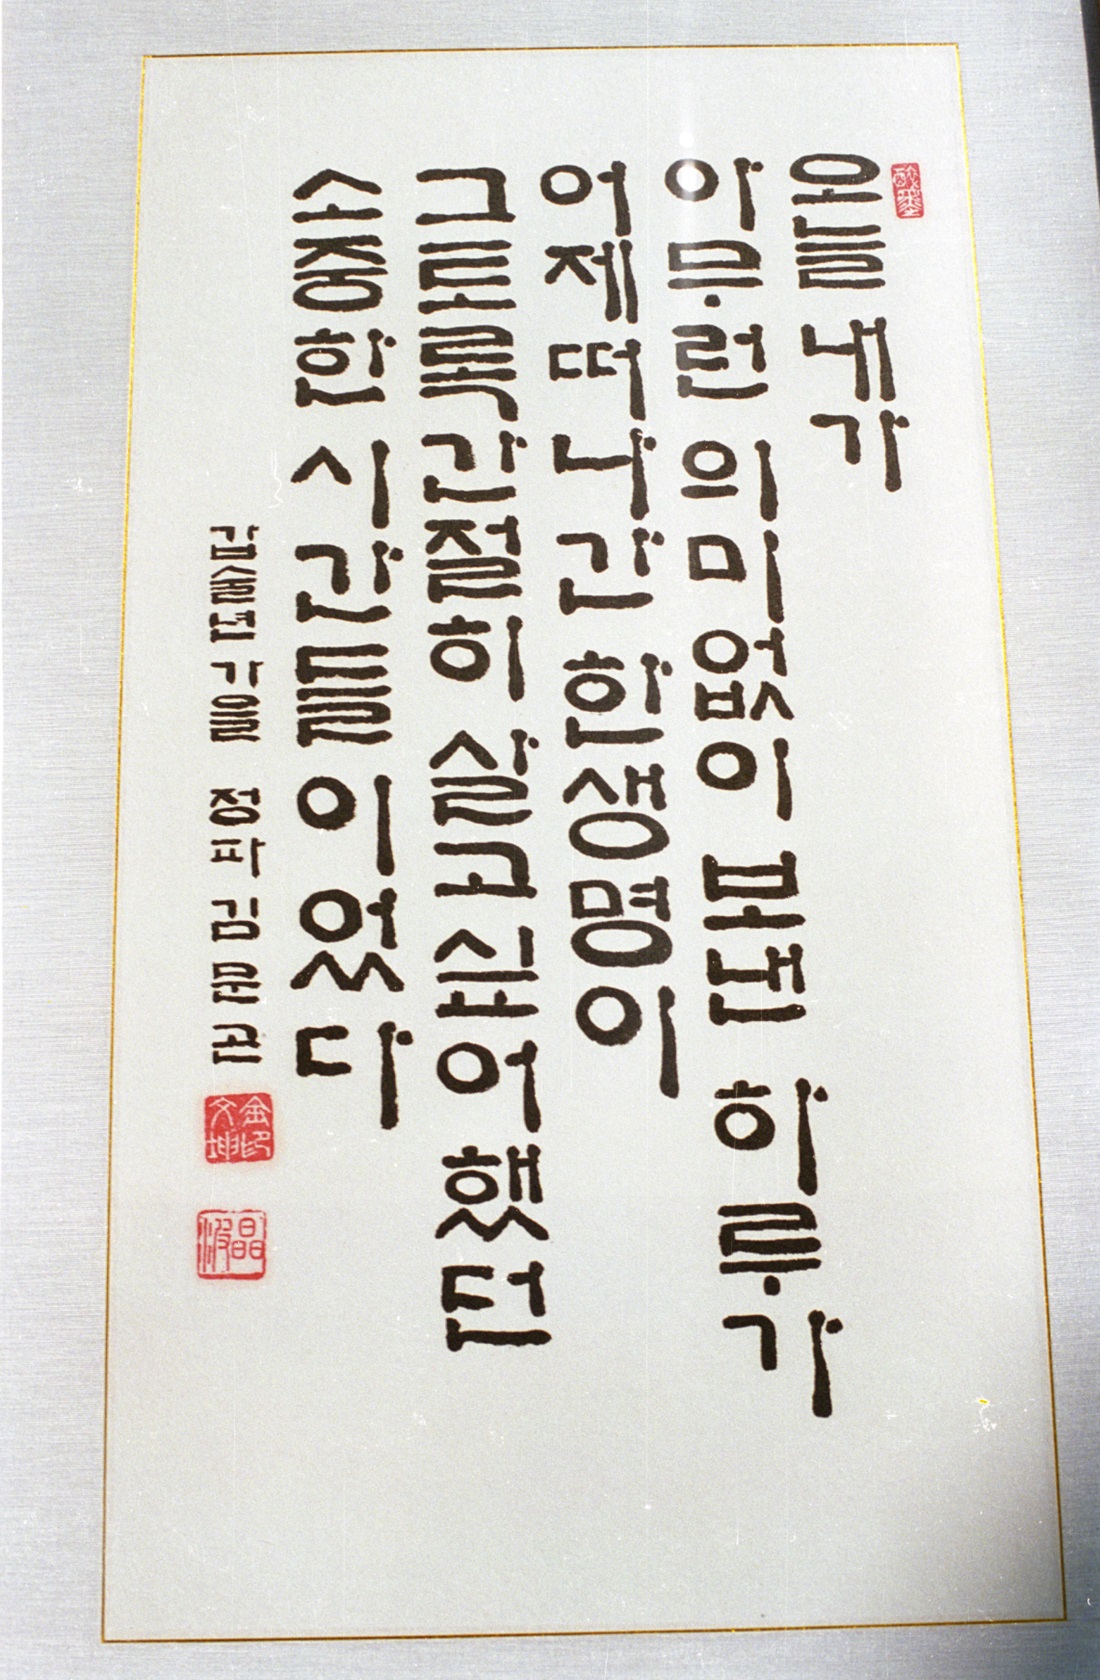 오늘 내가
아무런 의미없이 보낸 하루가
어제 떠나간 한 생명이
그토록 간절히 살고 싶어 했던
소중한 시간들이었다
갑술년 가을 정파 김문곤
金印
文坤
晶波